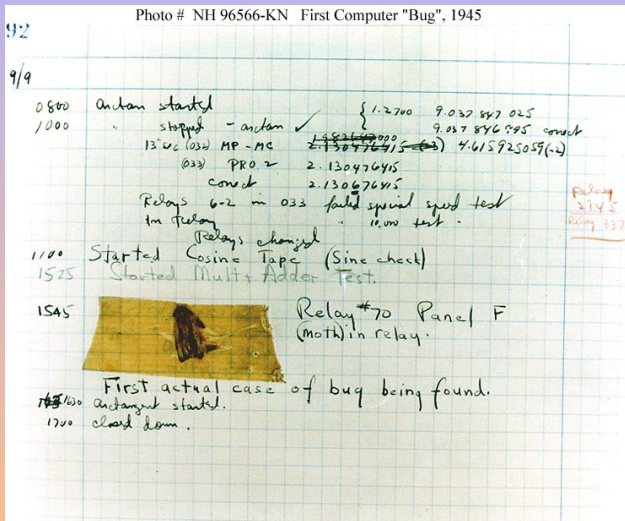 Photo # NH 96566-KN First Computer "Bug", 1945
92
9/9
0800 antan started { 1.2700 9.037 847 025
1000 " stopped - antan ✓ 9.037 846 995 conect
13"uc (032) MP - MC 2.130476415 4.615925059(-2)
(033) PRO 2 2.130476415
conect 2.130676415
Relays 6-2 in 033 failed special speed test
In Relay " 10.000 test .
Relay
2145
Relay 337
Relays changed
1100 Started Cosine Tape (Sine check)
1525 Started Mult + Adder Test.
1545 Relay #70 Panel F
(moth) in relay.
First actual case of bug being found.
1630 antangent started.
1700 closed down.